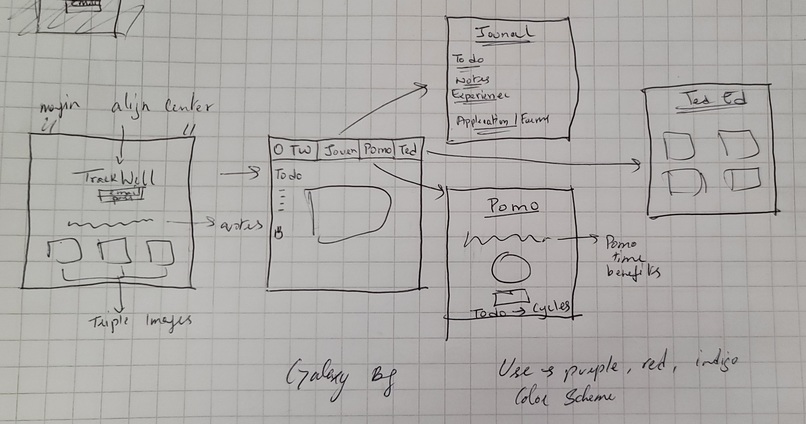 Journal
To do
Notes
Experience
Application / Forms
Ted Ed
margin align center
Track Well
Email
quotes
Triple Images
O TW Journ Pomo Ted
To do
Pomo
Pomo
time
benefits
To do → Cycles
Galaxy Bg
Use → purple, red, indigo
Color Scheme